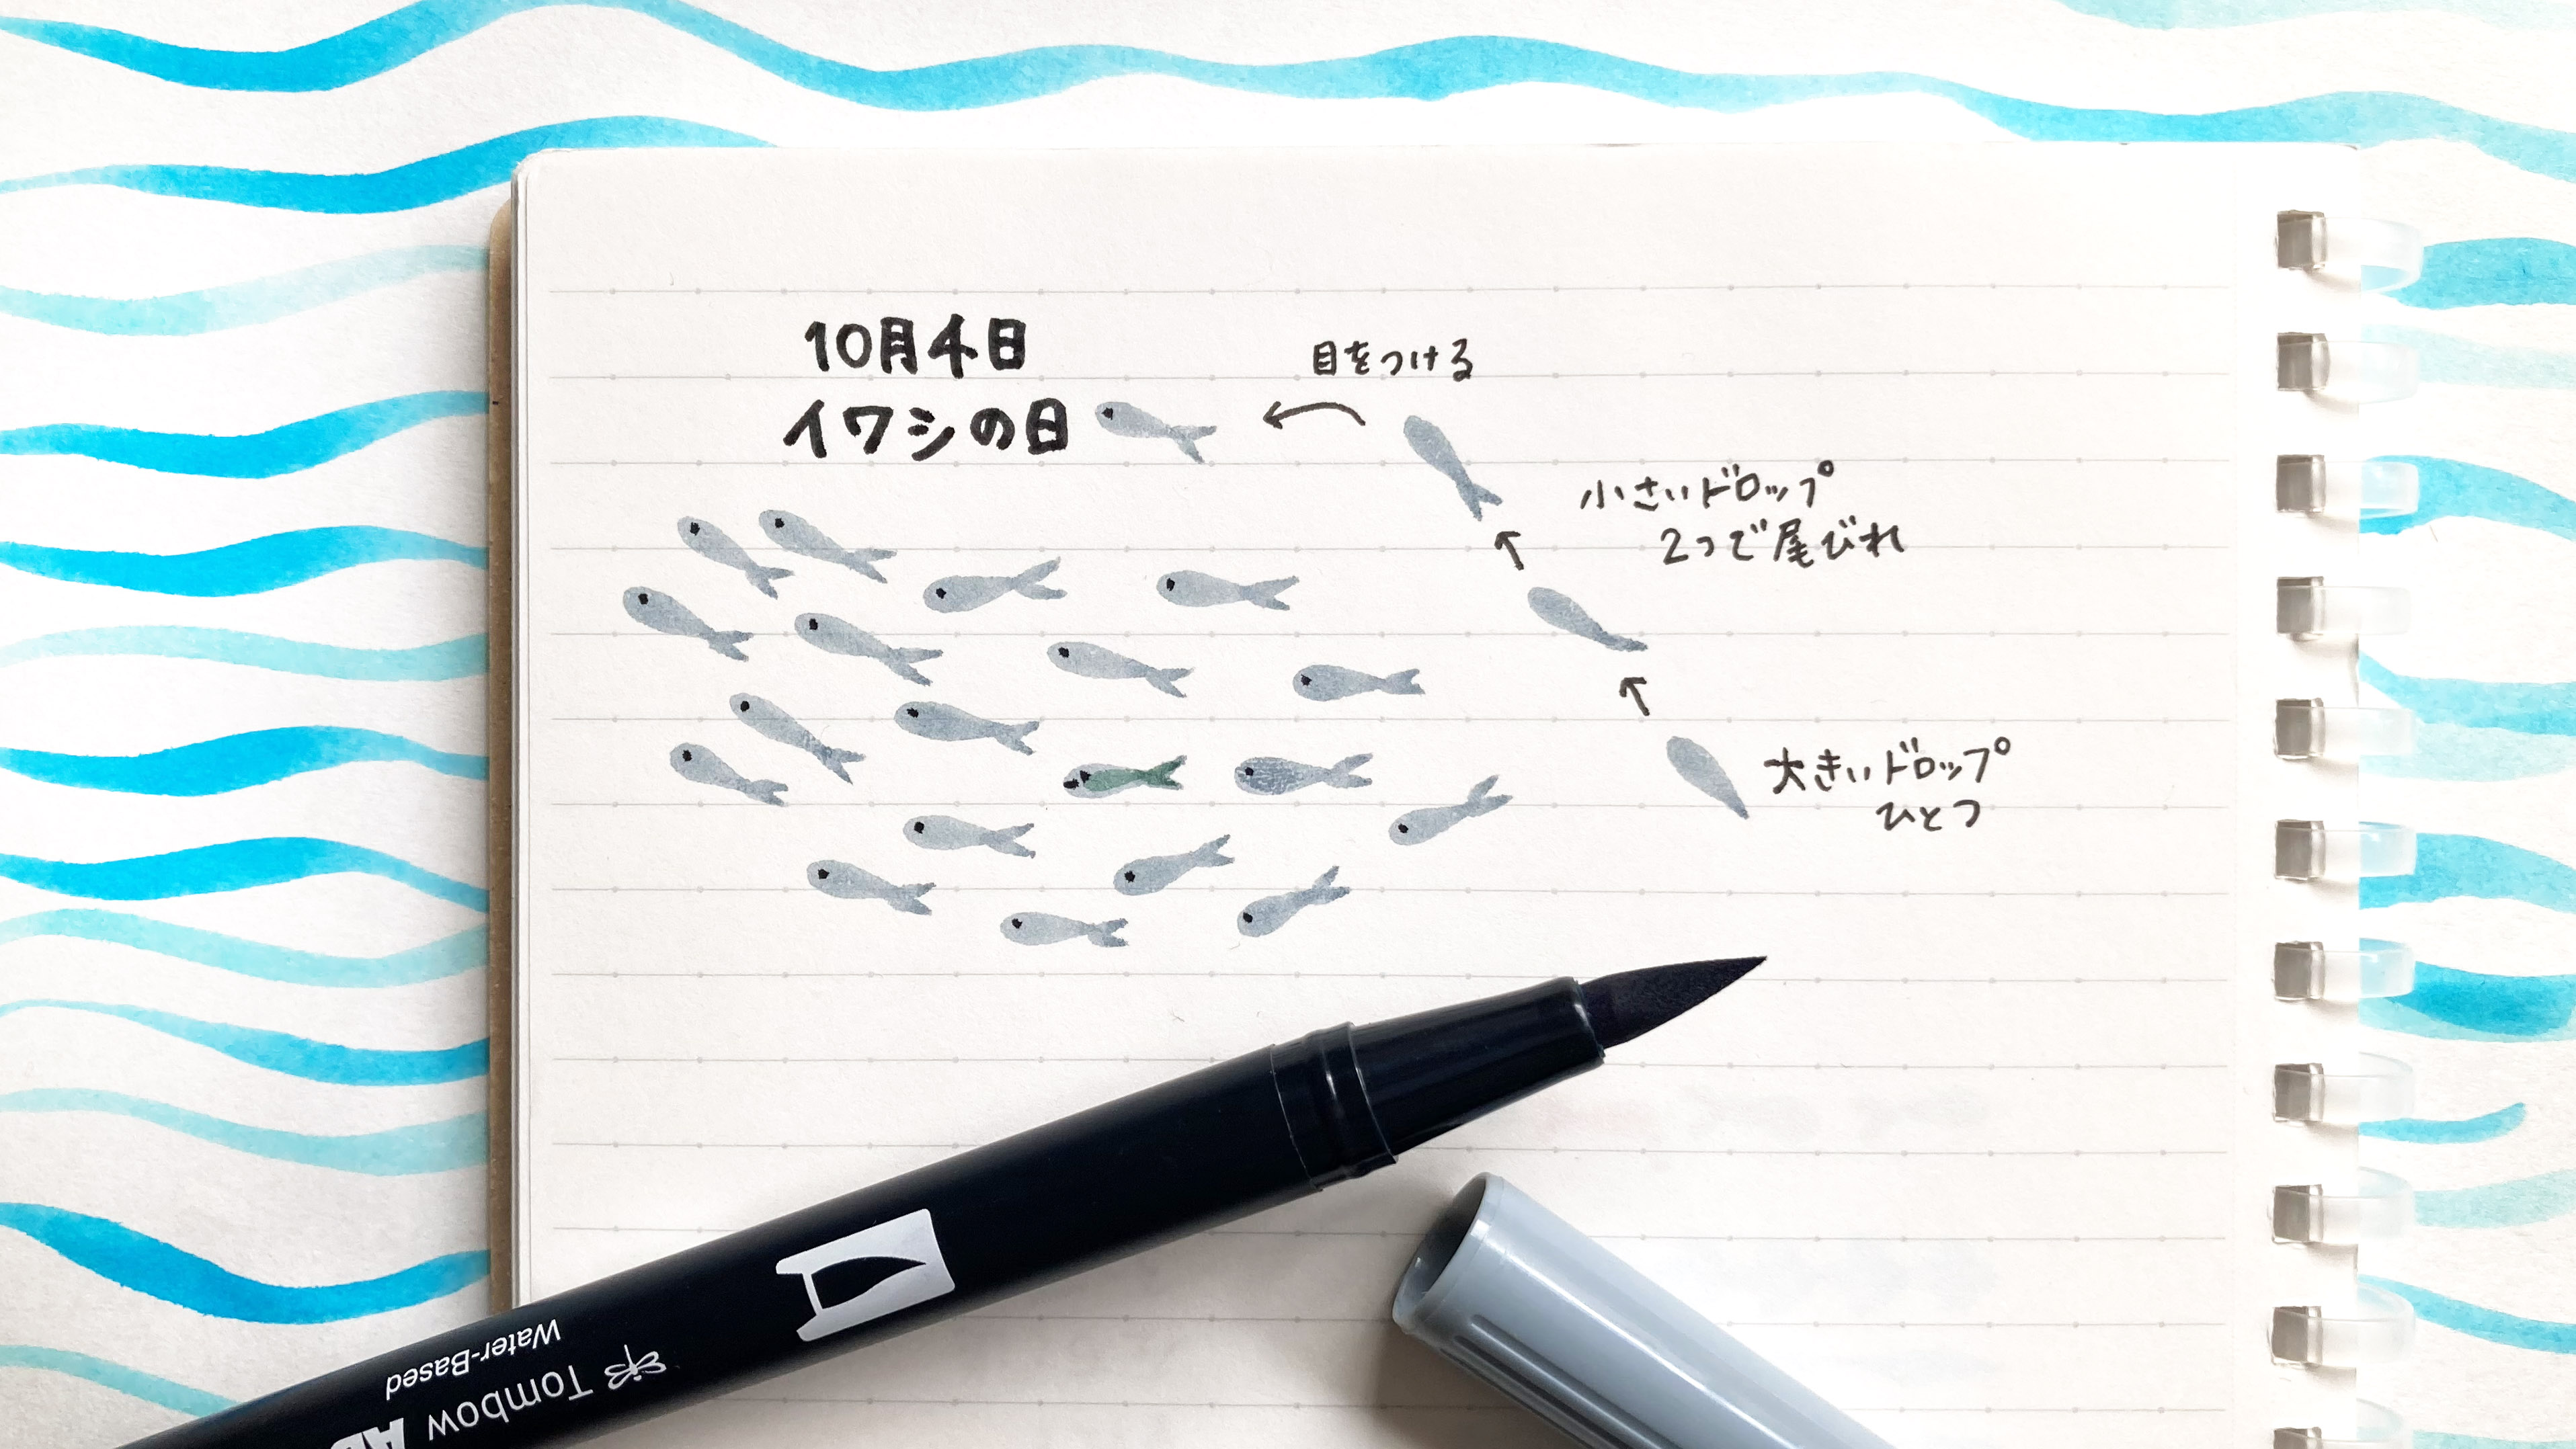 10月4日
イワシの日
目をつける
小さいドロップ
2つで尾びれ
大きいドロップ
ひとつ
Tombow
Water-Based